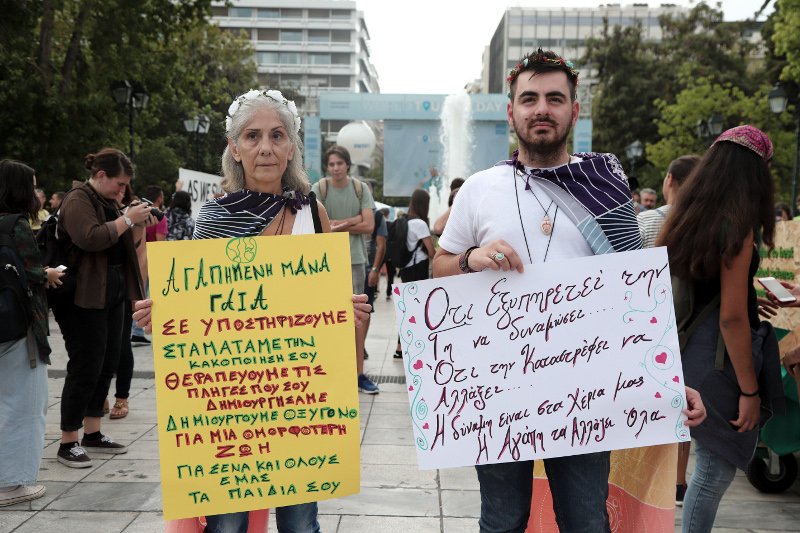 ΑΓΑΠΗΜΕΝΗ ΜΑΝΑ
ΓΑΙΑ
ΣΕ ΥΠΟΣΤΗΡΙΖΟΥΜΕ
ΣΤΑΜΑΤΑΜΕ ΤΗΝ
ΚΑΚΟΠΟΙΗΣΗ ΣΟΥ
ΘΕΡΑΠΕΥΟΥΜΕ ΤΙΣ
ΠΛΗΓΕΣ ΠΟΥ ΣΟΥ
ΔΗΜΙΟΥΡΓΗΣΑΜΕ
ΔΗΜΙΟΥΡΓΟΥΜΕ ΟΞΥΓΟΝΟ
ΓΙΑ ΜΙΑ ΟΜΟΡΦΟΤΕΡΗ
ΖΩΗ
ΓΙΑ ΣΕΝΑ ΚΑΙ ΟΛΟΥΣ
ΕΜΑΣ
ΤΑ ΠΑΙΔΙΑ ΣΟΥ
Ότι Εξυπηρετεί την
Γη να δυναμώσει....
Ότι την Καταστρέφει να
Αλλάξει....
Η δύναμη είναι στα Χέρια μας
Η Αγάπη τα Αλλάζει Όλα
AS WE
DAY